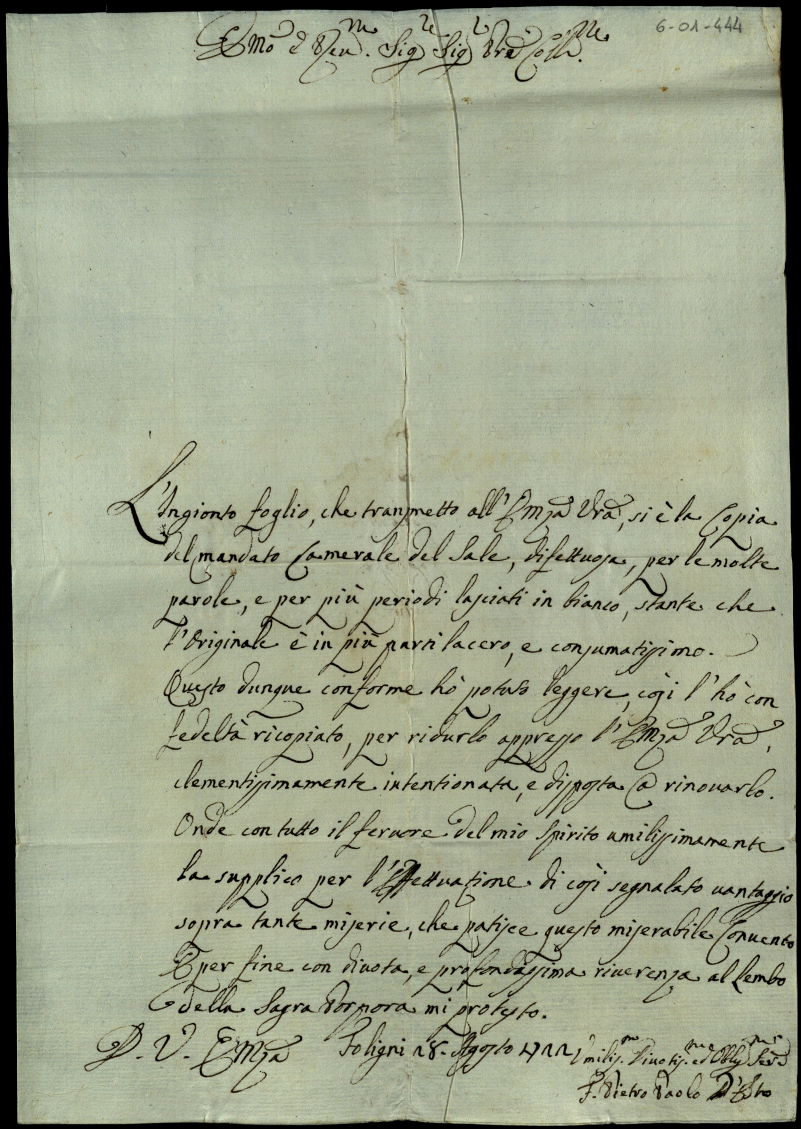 6-01-444
Emo e Reu.mo Sig.re Sig.r Pra Coll.mo
L'Ingionto foglio, che transmetto all'Emza Vra, si è la Copia
del mandato Camerale del Sale, difettuosa, per le molte
parole, e per più periodi lasciati in bianco, stante che
l'Originale è in più parti lacero, e consumatissimo.
Questo dunque conforme hò potuto leggere, così l'hò con
fedeltà ricopiato, per ridurlo appresso l'Emza Vra,
clementissimamente intentionata, e disposta a rinouarlo.
Onde con tutto il feruore del mio Spirito umilissimamente
la supplico per l'Effettuazione di così segnalato uantaggio
sopra tante miserie, che patisce questo miserabile Conuento
E per fine con diuota, e profondissima riuerenza al lembo
della Sagra Porpora mi protesto.
D. V. Emza
Foligni 28. Agosto 1722
Vmilis.mo Diuotis.mo ed Oblig.mo Ser.e
F. Pietro Paolo D'